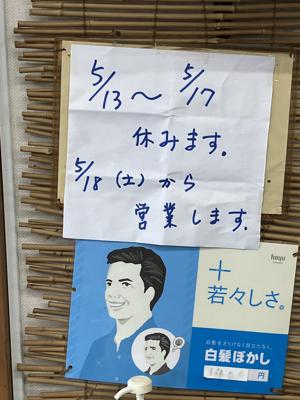 5/13～5/17
休みます。
5/18(土)から
営業します。
hoyu
＋
若々しさ。
白髪をさりげなく目立たなく。
白髪ぼかし
円